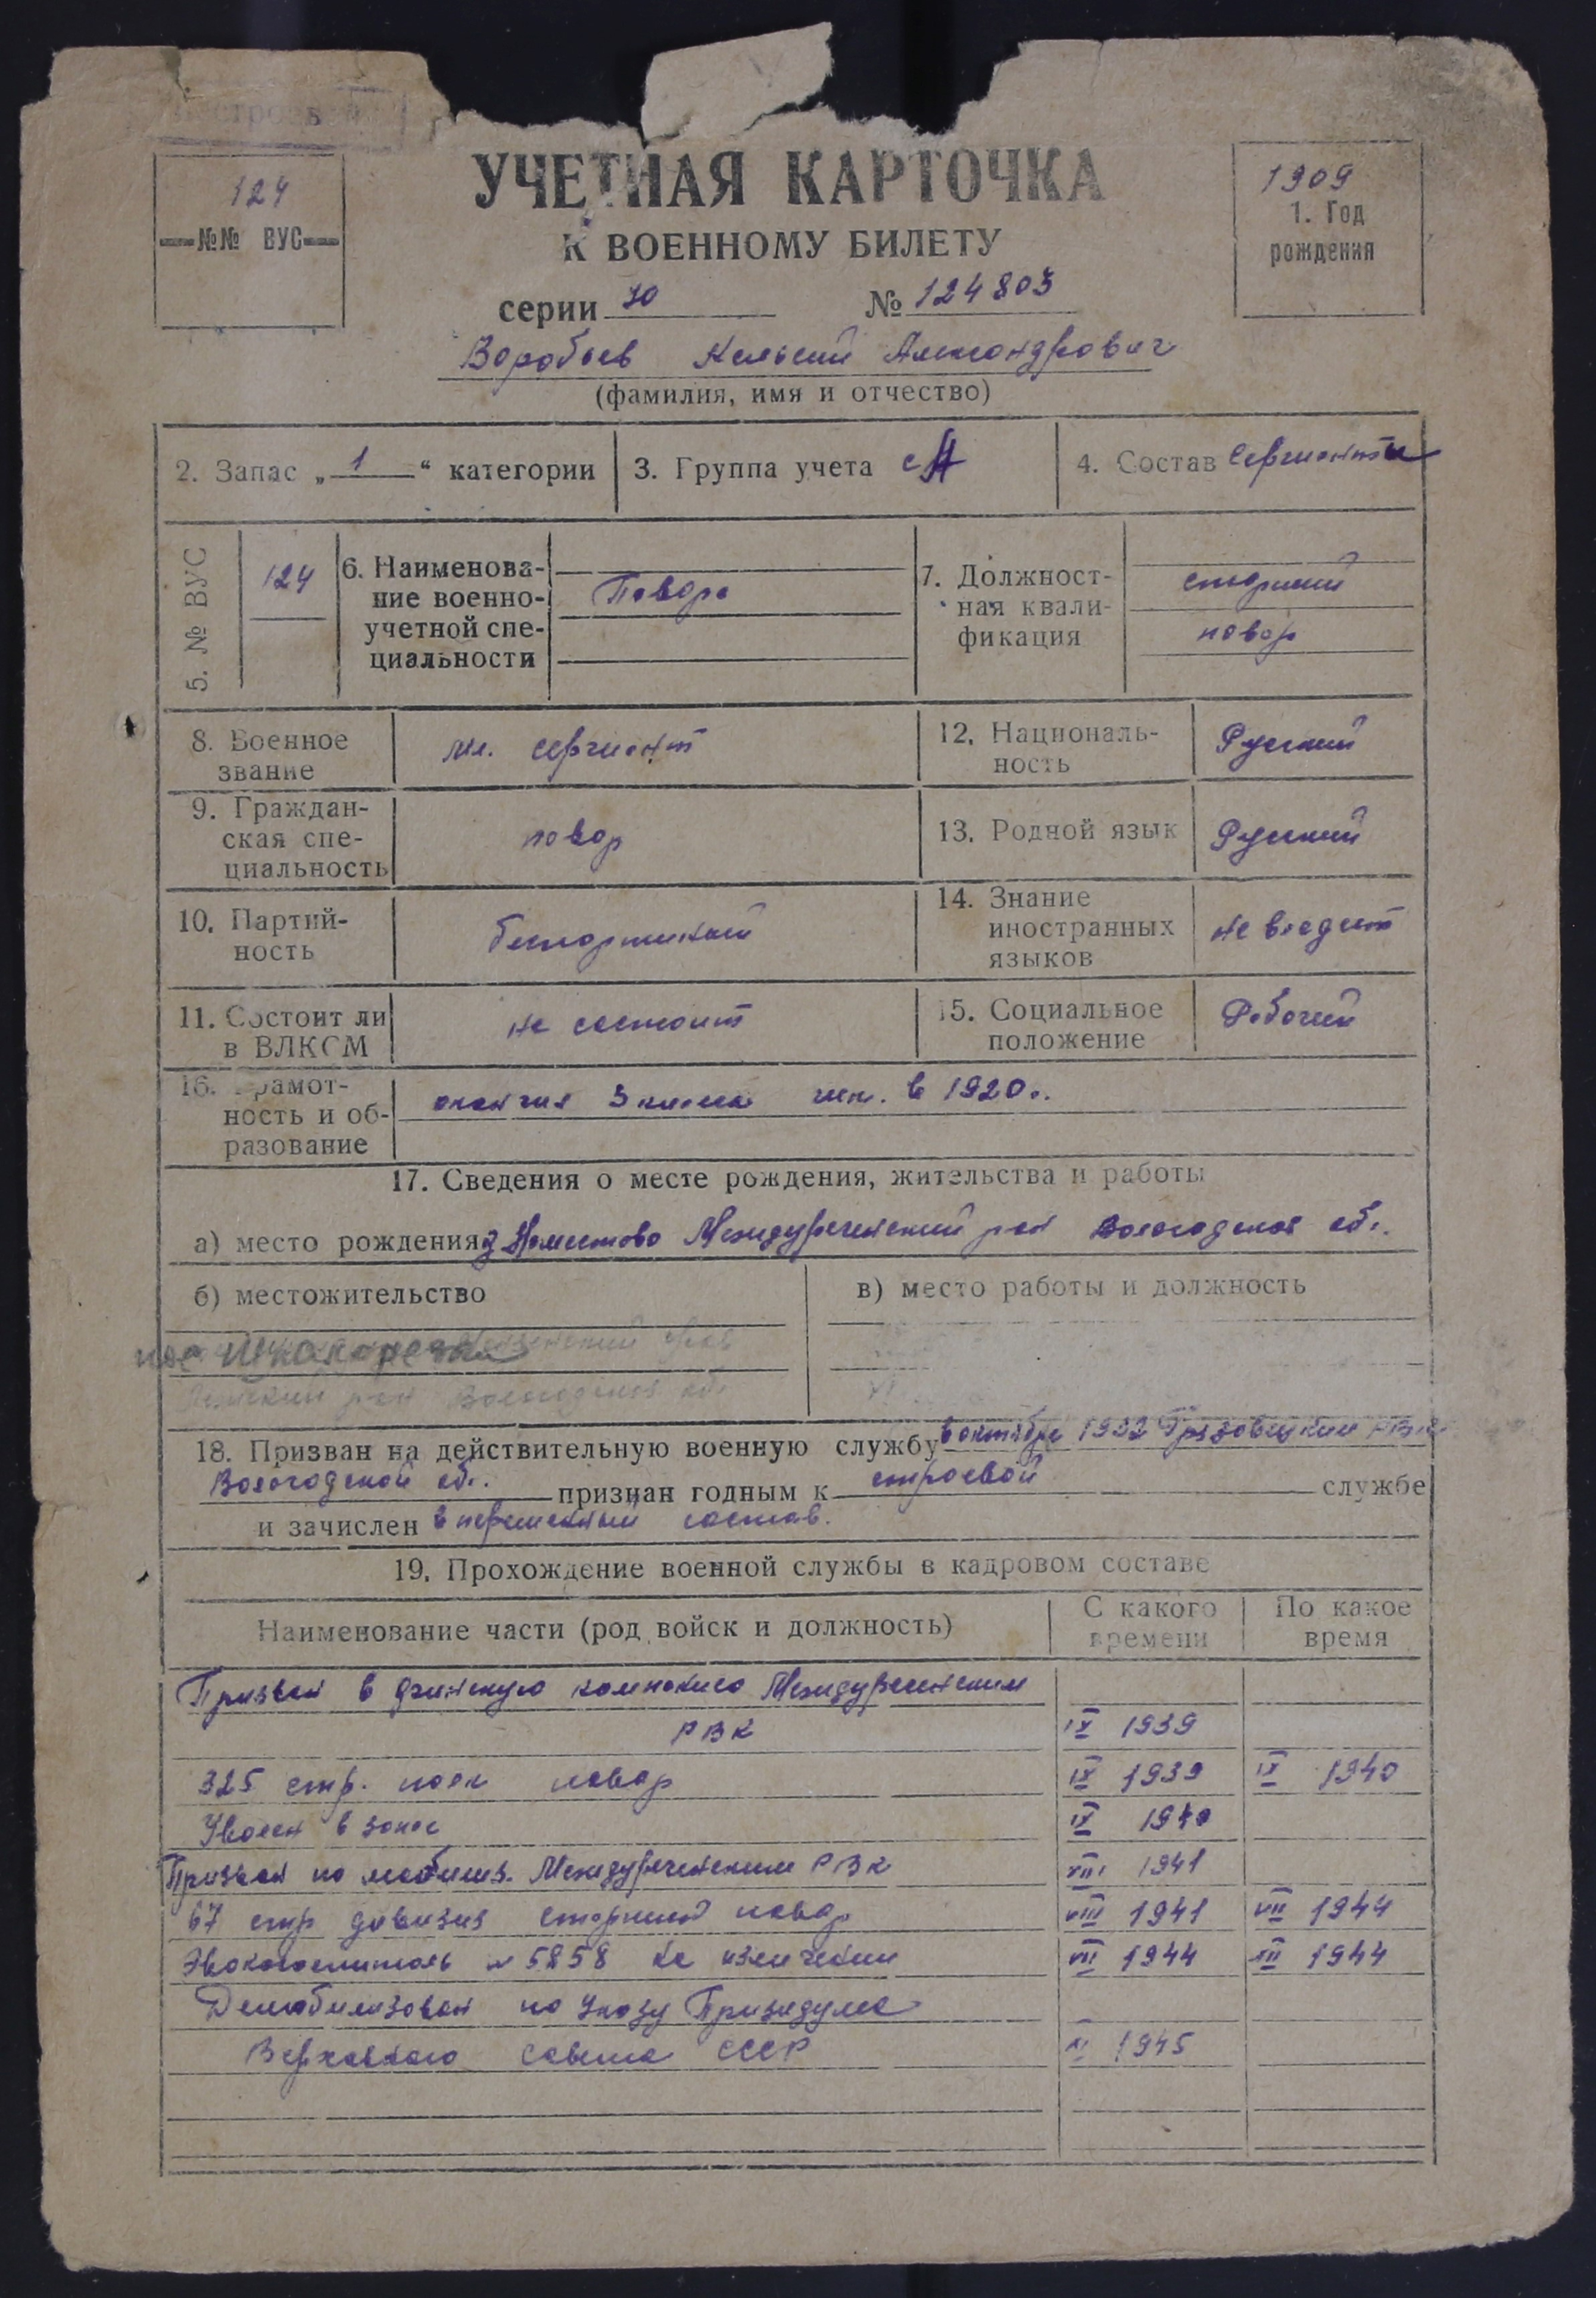 124
№№ ВУС
УЧЕТНАЯ КАРТОЧКА
К ВОЕННОМУ БИЛЕТУ
1909
1. Год
рождения
серии № 124803
Воробьев Александрович
(фамилия, имя и отчество)
2. Запас „ 1 “ категории
3. Группа учета СА
4. Состав Сержанты
5. № ВУС
124
6. Наименова-
ние военно-
учетной спе-
циальности
Повара
7. Должност-
ная квали-
фикация
старший
повар
8. Военное
звание
мл. сержант
12. Националь-
ность
Русский
9. Граждан-
ская спе-
циальность
повар
13. Родной язык
Русский
10. Партий-
ность
беспартийный
14. Знание
иностранных
языков
не владеет
11. Состоит ли
в ВЛКСМ
не состоит
15. Социальное
положение
Рабочий
16. Грамот-
ность и об-
разование
окончил 3 класса в 1920 г.
17. Сведения о месте рождения, жительства и работы
а) место рождения Междуреченский р-он Вологодская обл.
б) местожительство
в) место работы и должность
пос
р-он Вологодская обл.
18. Призван на действительную военную службу в октябре 1932 Грязовецким РВК
Вологодской обл. признан годным к строевой службе
и зачислен в переменный состав.
19. Прохождение военной службы в кадровом составе
Наименование части (род войск и должность)
С какого
времени
По какое
время
Призван в финскую компанию Междуреченским
РВК IX 1939
325 стр. полк повар IX 1939 IX 1940
Уволен в запас IX 1940
Призван по мобилиз. Междуреченским РВК VIII 1941
67 стр дивизия старший повар VIII 1941 VII 1944
Эвакогоспиталь № 5858 на излечении VII 1944 XII 1944
Демобилизован по Указу Призидума
Верховного Совета СССР 1945